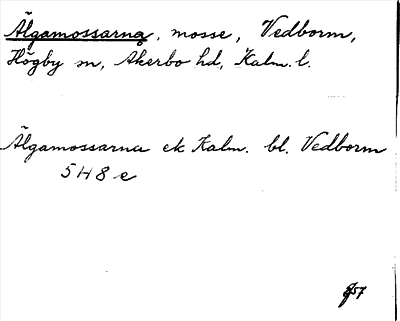 Älgamossarna, mosse, Vedborm,
Högby sn, Åkerbo hd, Kalm. l.
Älgamossarna ek Kalm. bl. Vedborm
5 H 8 e